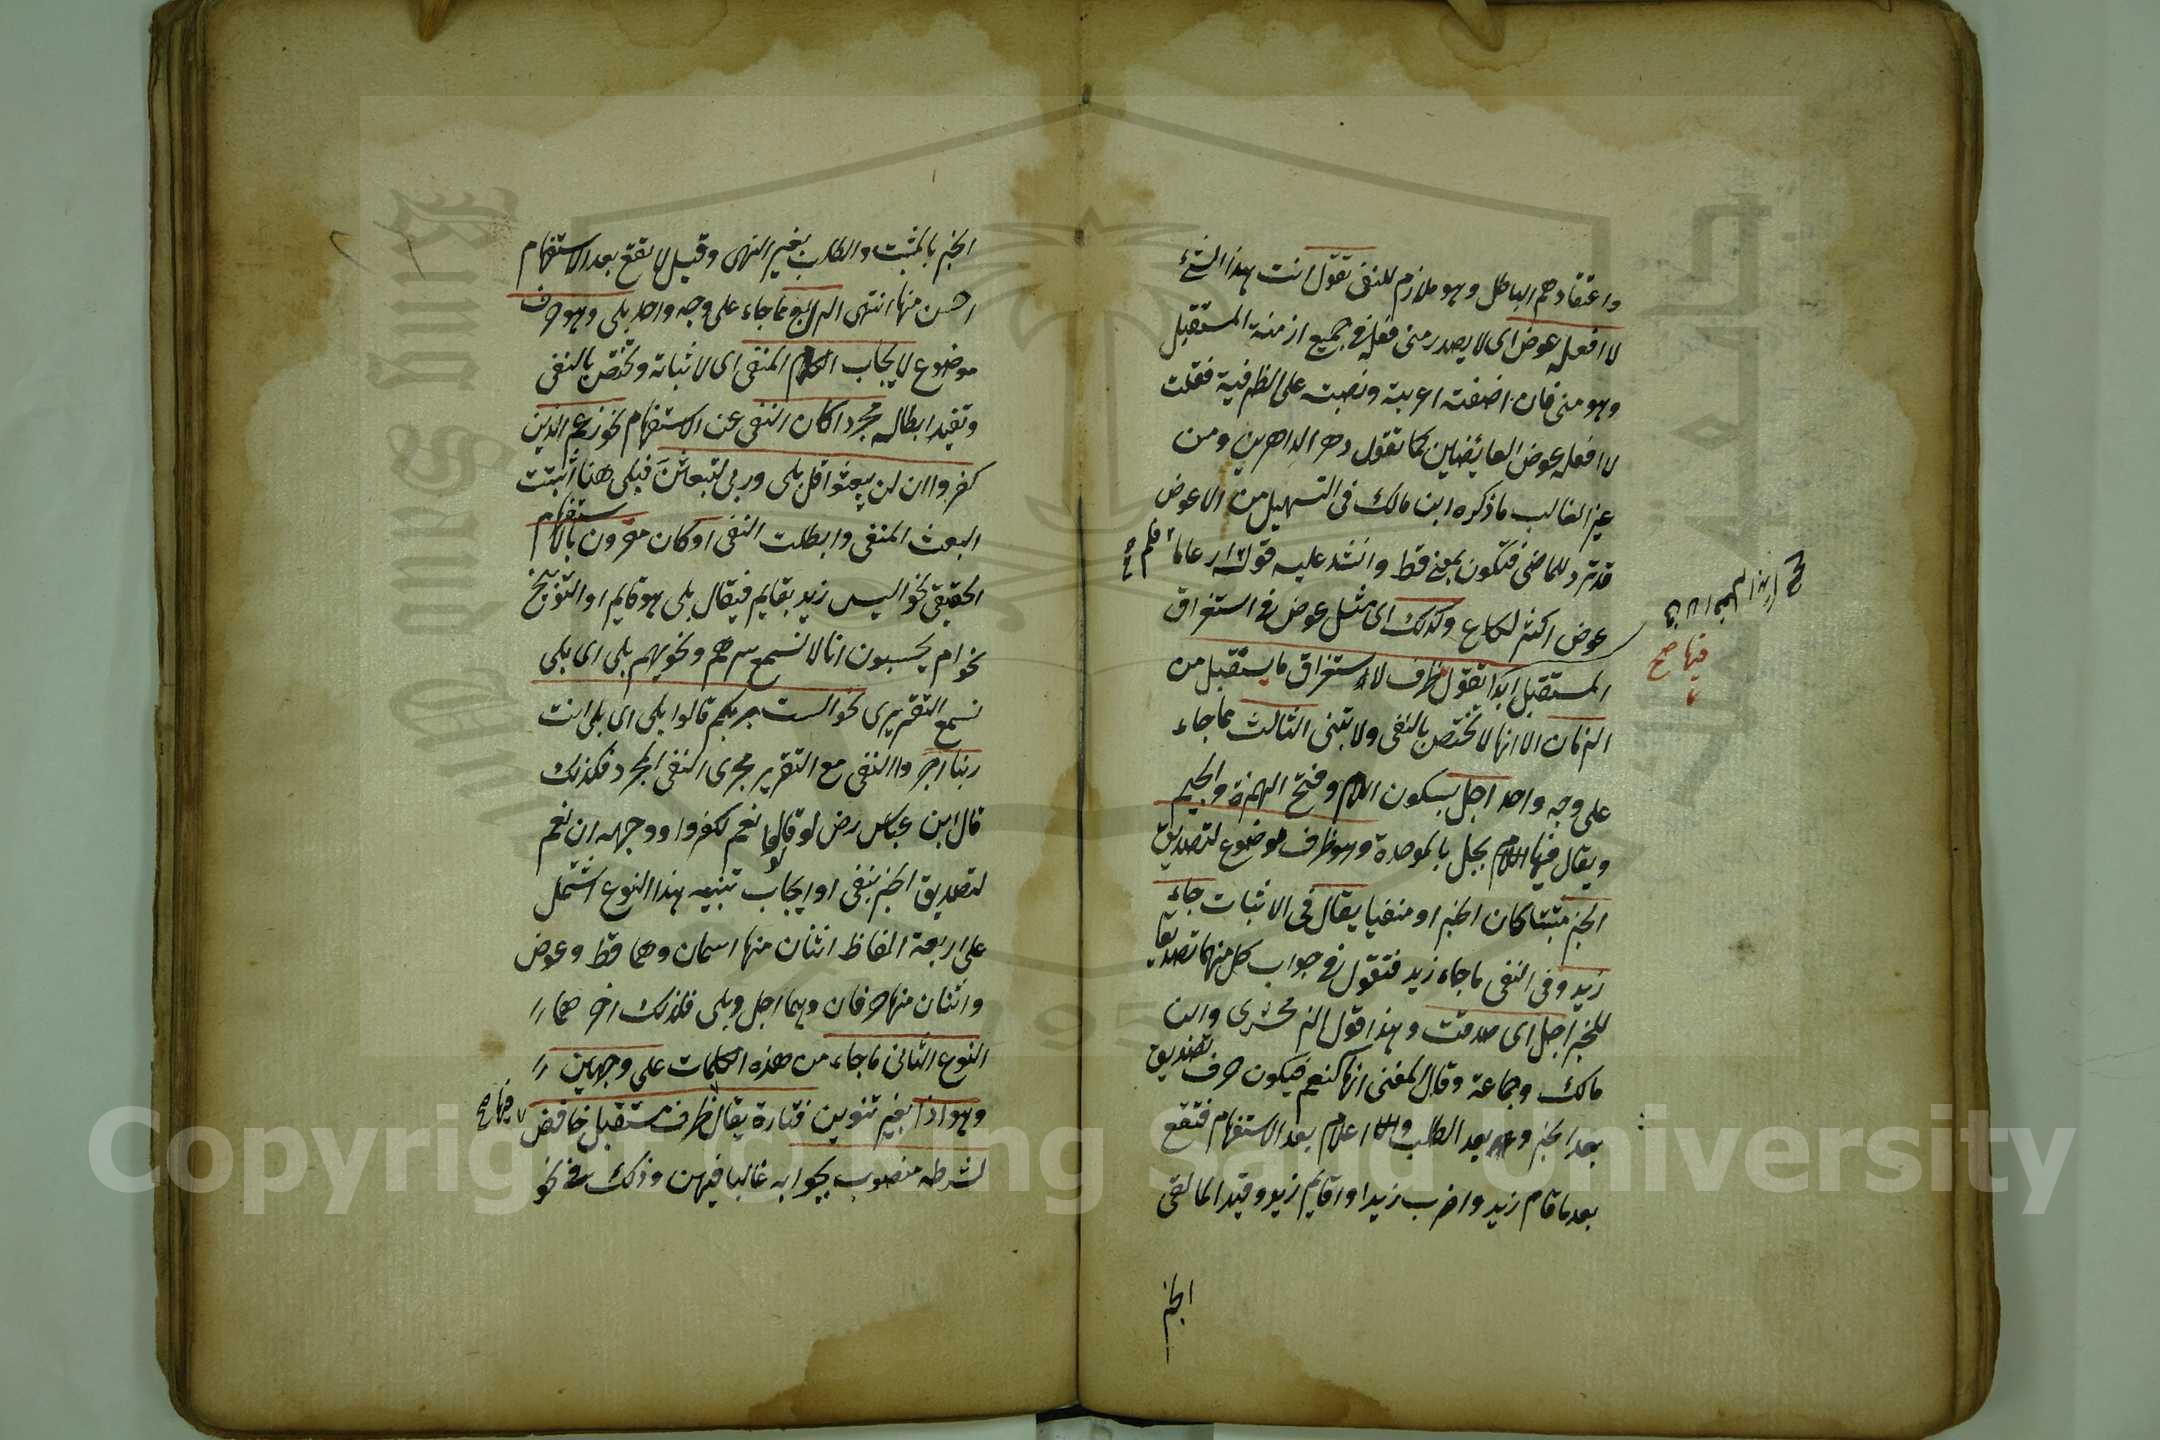 واعتقادهم الباطل وهو ملازم للنفى تقول انت هذا الشئ
لا افعله عوض اى لا يصدر منى فعله فى جميع ازمنة المستقبل
وهو مبنى فان اضفته اعربته ونصبته على الظرفية فقلت
لا افعله عوض العائضين كما تقول دهر الداهرين ومن
غير الغالب ما ذكره ابن مالك فى التسهيل من ان عوض
قد ترد للماضى فتكون بمعنى قط وانشد عليه قوله فلم ار عاما
عوض اكثر هالكا وكذلك اى مثل عوض فى استغراق
المستقبل ابدا تقول ظرف لاستغراق ما يستقبل من
الزمان الا انها لا تختص بالنفى ولا تبنى الثالث مما جاء
على وجه واحد اجل بسكون اللام وفتح الهمزة والجيم
ويقال فيها بجل بالموحدة وهو ظرف موضوع لتصديق
الخبر مثبتا كان الخبر او منفيا يقال فى الاثبات جاء
زيد وفى النفى ما جاء زيد فتقول فى جواب كل منهما تصديقا
للمخبر اجل اى صدقت وهذا قول الزمخشرى وابن
مالك وجماعة وقال المغنى انها كنعم فيكون حرف تصديق
بعد الخبر و بعد الطلب و اعلام بعد الاستفهام فتقع
بعد ما قام زيد واضرب زيدا واقايم زيد وقيد المالقى
الخبر
فيها صح
الخبر بالمثبت والطلب بغير النهى وقيل لا تقع بعد الاستفهام
احسن منها انتهى الرابع مما جاء على وجه واحد بلى وهو حرف
موضوع لايجاب الكلام المنفى اى لاثباته وتختص بالنفى
وتفيد ابطاله مجردا كان النفى عن الاستفهام نحو زعم الذين
كفروا ان لن يبعثوا قل بلى وربى لتبعثن فبلى هنا اثبتت
البعث المنفى وابطلت النفى او كان مقرون بالاستفهام
الحقيقى نحو اليس زيد بقايم فيقال بلى هو قايم او التوبيخى
نحو ام يحسبون انا لا نسمع سرهم ونجويهم بلى اى بلى
نسمع التقريرى نحو الست بربكم قالوا بلى اى بلى انت
ربنا اجروا النفى مع التقرير مجرى النفى المجرد فلذلك
قال ابن عباس رض لو قالوا نعم لكفروا ووجهه ان نعم
لتصديق الخبر بنفى او ايجاب تنبيه هذا النوع اشتمل
على اربعة الفاظ اثنان منها اسمان وهما قط وعوض
واثنان منها حرفان وهما اجل وبلى فلذلك اخرهما
النوع الثانى ما جاء من هذه الكلمات على وجهين
وهو اذا بغير تنوين فتارة يقال ظرف مستقبل خافض
لشرطه منصوب بجوابه غالبا فيهن وذلك فى نحو
فيها صح
Copyright to King Saud University